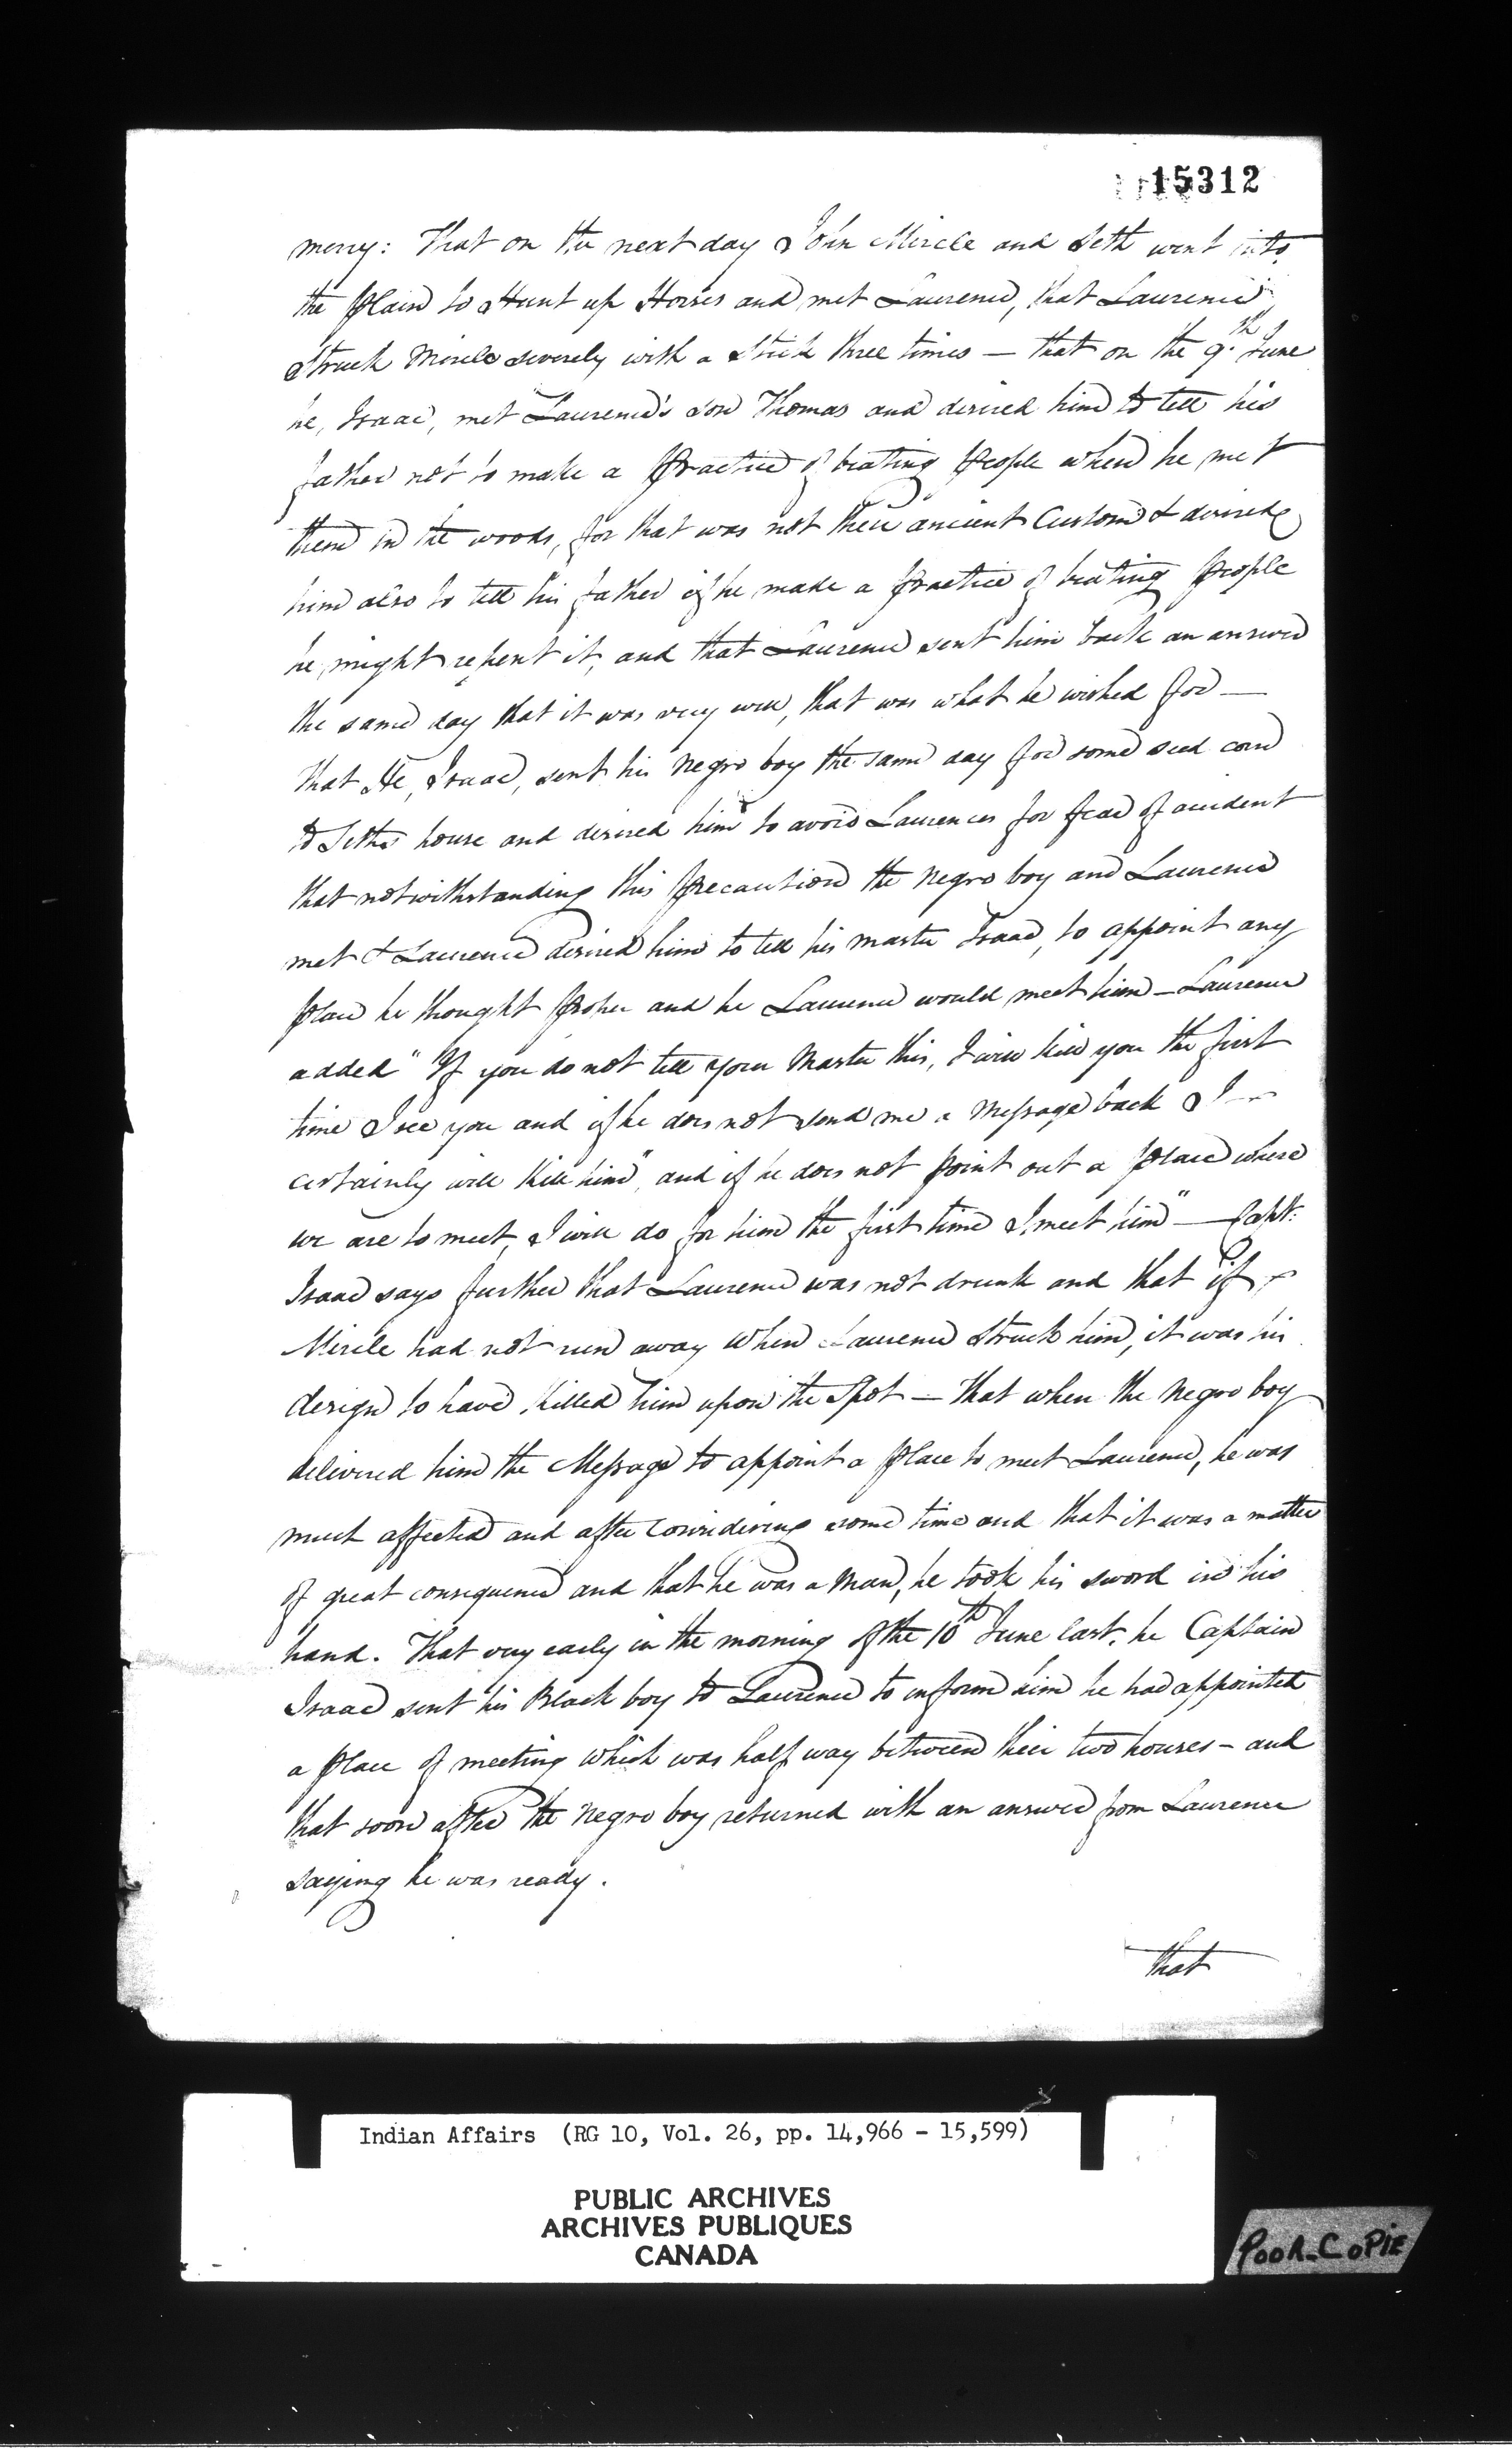 15312
merry: That on the next day John Mircle and Seth went into
the Plain to Hunt up Horses and met Laurence, that Laurence
Struck Mircle severely with a Stick three times — that on the 9.th June
he, Isaac, met Laurence's son Thomas and desired him to tell his
father not to make a practice of beating people when he met
them in the woods, for that was not their ancient Custom & desired
him also to tell his father if he made a practice of beating people
he might repent it, and that Laurence sent him back an answer
the same day that it was very well, that was what he wished for —
That He, Isaac, sent his Negro boy the same day for some seed corn
to Seths house and desired him to avoid Laurences for fear of accident
that notwithstanding this precaution the Negro boy and Laurence
met & Laurence desired him to tell his master Isaac, to appoint any
place he thought proper and he Laurence would meet him — Laurence
added "If you do not tell your Master this, I will kill you the first
time I see you and if he does not send me a Message back I —
certainly will kill him", and if he does not point out a place where
we are to meet, I will do for him the first time I meet him" — Capt:
Isaac says further that Laurence was not drunk and that if
Mircle had not run away when Laurence Struck him, it was his
design to have killed him upon the Spot — That when the Negro boy
delivered him the Message to appoint a place to meet Laurence, he was
much affected and after considering some time and that it was a matter
of great consequence and that he was a Man, he took his sword in his
hand. That very early in the morning of the 10th June last, he Captain
Isaac sent his Black boy to Laurence to inform him he had appointed
a place of meeting which was half way between their two houses — and
that soon after the Negro boy returned with an answer from Laurence
saying he was ready.
that
Indian Affairs (RG 10, Vol. 26, pp. 14,966 - 15,599)
PUBLIC ARCHIVES
ARCHIVES PUBLIQUES
CANADA
POOR-COPIE